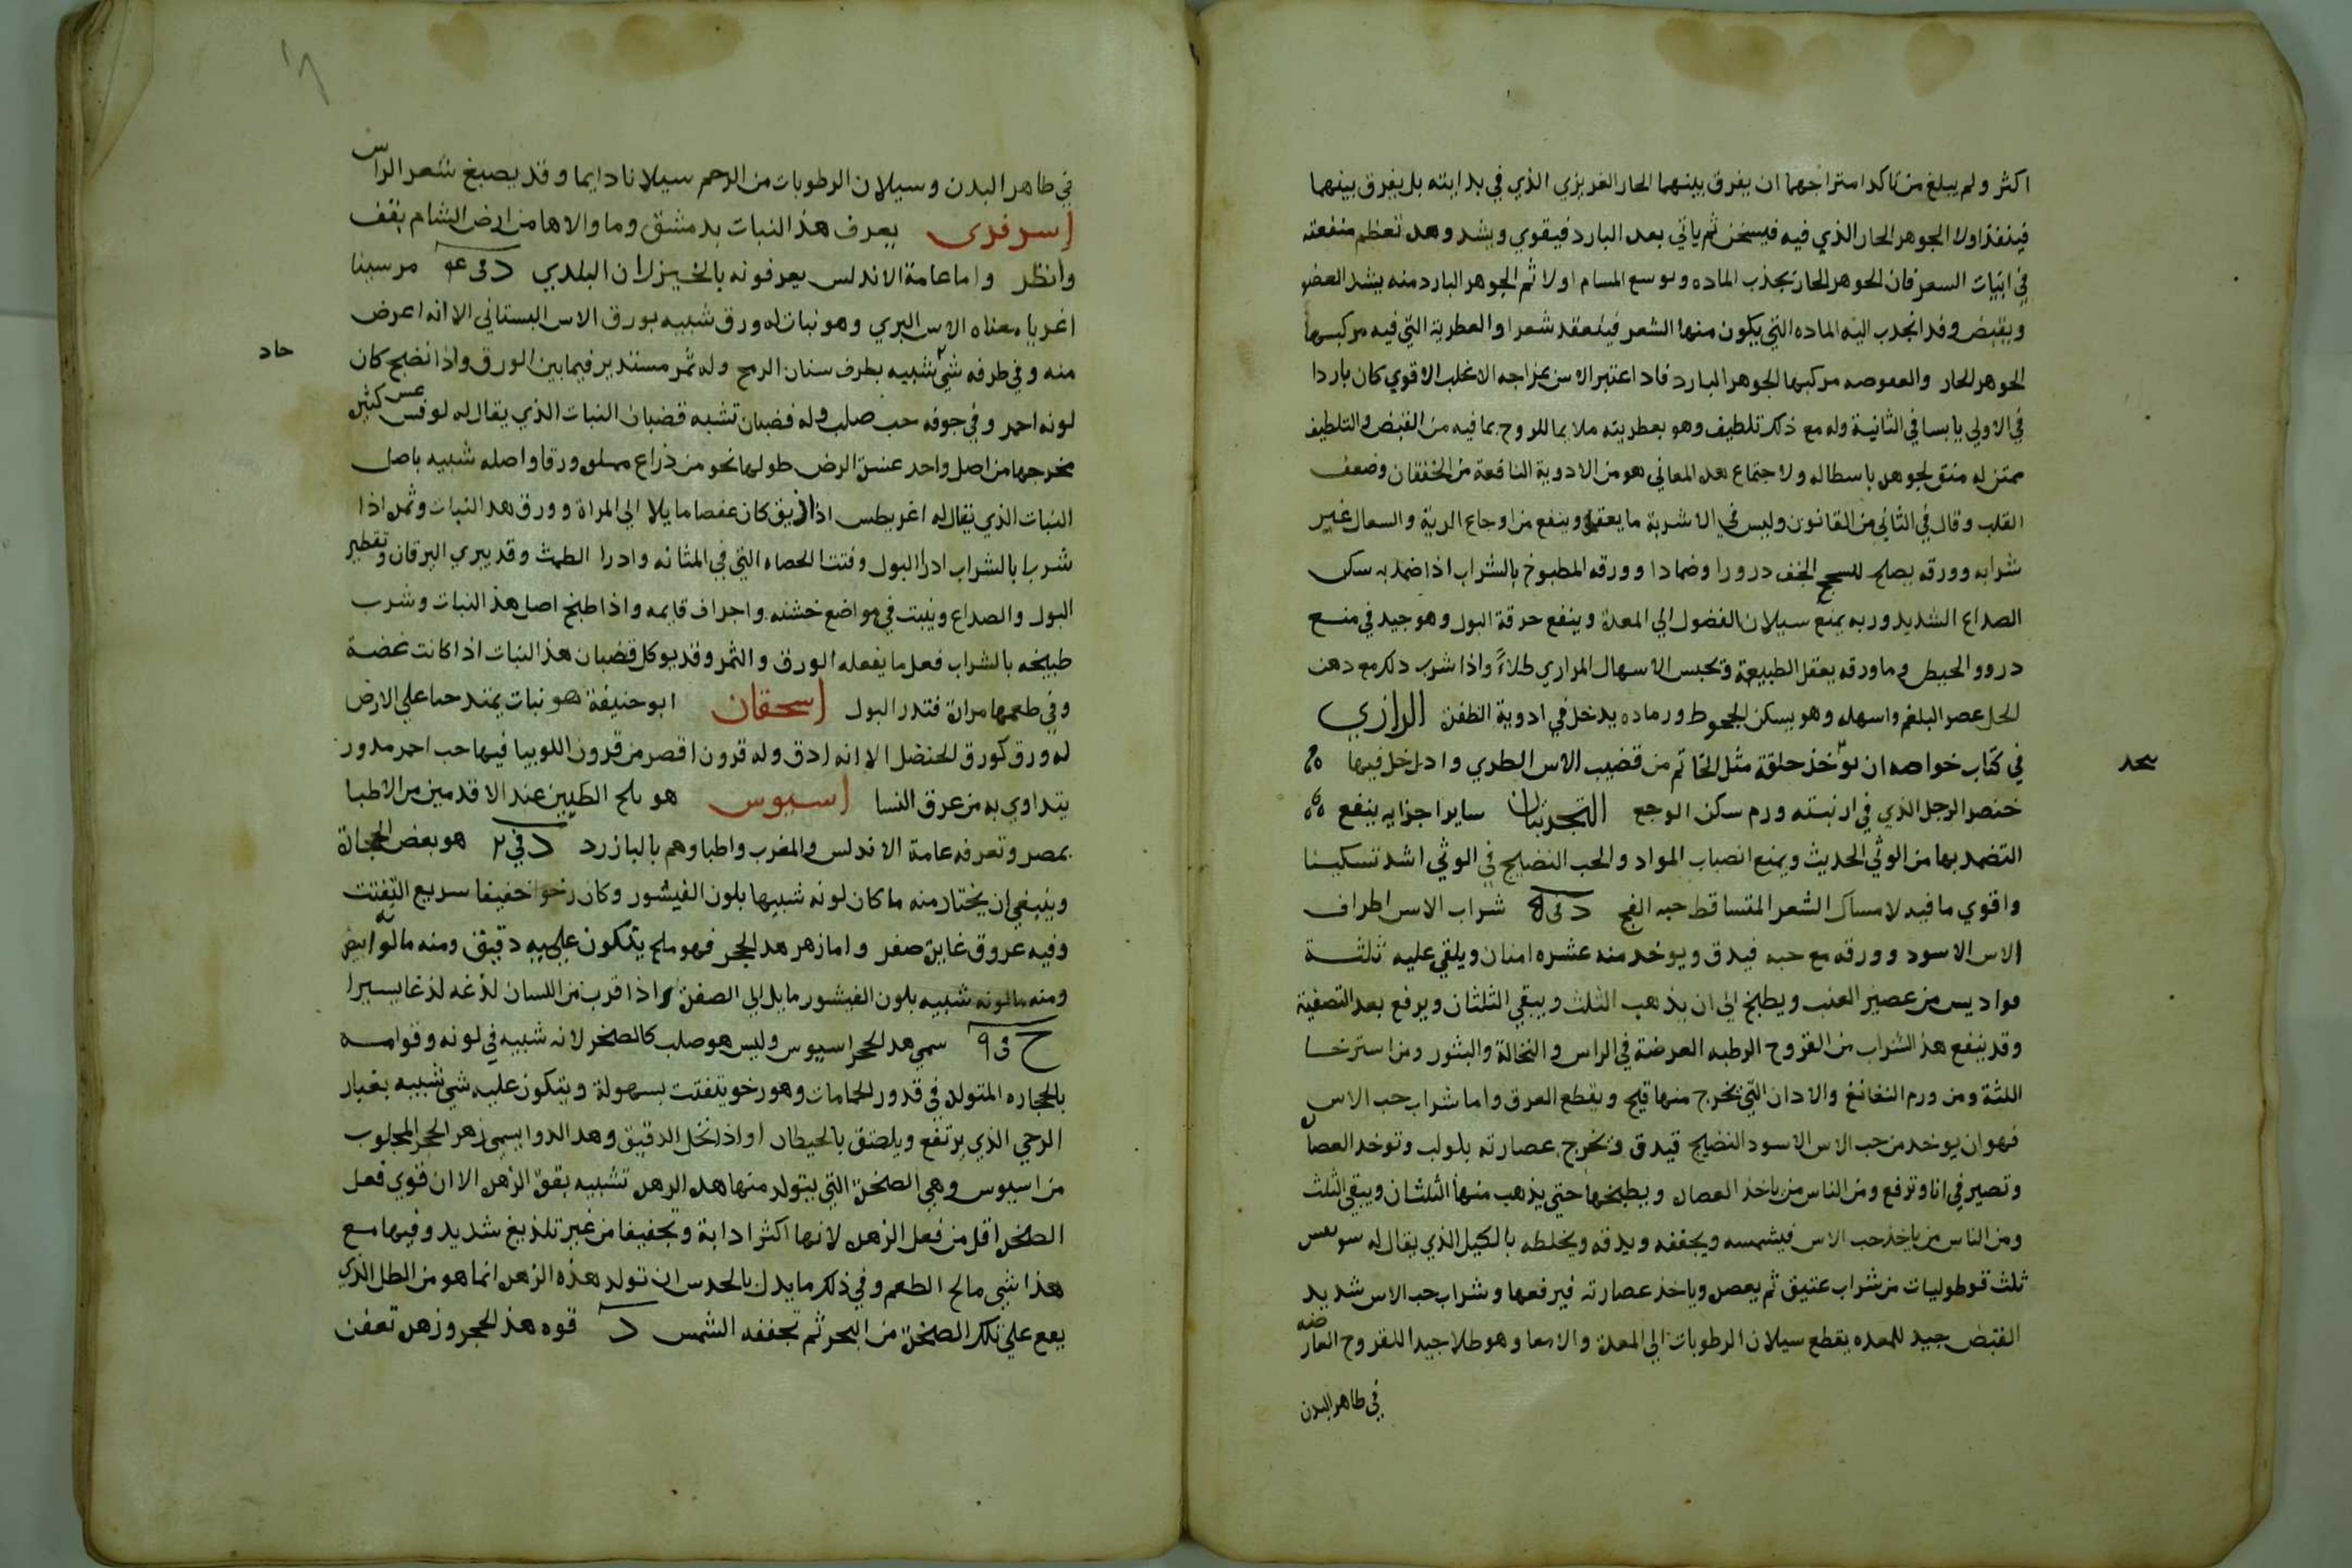 اكثر ولم يبلغ من تاكد امتزاجهما ان يفرق بينهما الحار الغريزي الذي في بدايته بل يفرق بينهما
فينفذ اولا الجوهر الحار الذي فيه فيسخن ثم ياتي بعد البارد فيقوي ويشد وهد تعظم منفعته
في انبات السعر فان الجوهر الحار يجذب الماده وبوسع المسام اولا ثم الجوهر البارد منه يشد العضو
ويقبض وقد انجدب اليه الماده التي يكون منها الشعر فينعقد شعرا والعطرية التي فيه مركبها
الجوهر الحار والعفوصه مركبها الجوهر البارد فاد اعتبر الاس بمزاجه الاغلب الاقوي كان باردا
في الاولي يابسا في الثانية وله مع ذلك تلطيف وهو بعطريته ملايما للروح بما فيه من القبض والتلطيف
ممتن له منق لجوهره باسطا له ولاجتماع هده المعاني هو من الادوية النافعة من الخفقان وضعف
القلب وقال في الثاني من القانون وليس في الاشربة ما يعقل وينفع من اوجاع الرية والسعال غير
شرابه وورقه يصلح للسحج الخف درورا وضمادا وورقه المطبوخ بالشراب اذا ضمد به سكن
الصداع الشديد وربه يمنع سيلان الفضول الي المعدة وينفع حرقة البول وهو جيد في منع
درور الحيض وما ورقه يعقل الطبيعة وتحبس الاسهال المراري طلاءً واذا شرب دلك مع دهن
الحل عصر البلغم واسهله وهو يسكن الجحوظ ورماده يدخل في ادوية الظفرة الرازي
في كتاب خواصه ان توخذ حلقة مثل الخاتم من قضيب الاس الطري وادخل فيها
خنصر الرجل الذي في اربيته ورم سكن الوجع التجربتان ساير اجزايه ينفع
التضمد بها من الوثي الحديث ويمنع انصباب المواد والحب النضيج في الوثي اشد تسكينا
واقوي ما فيه لامساك الشعر المتساقط حبه الفج د في ٥ شراب الاس اطراف
الاس الاسود وورقه مع حبه فيدق ويوخد منه عشره امنان ويلقي عليه ثلثة
مواديس من عصير العنب ويطبخ الي ان يذهب الثلث ويبقي الثلثان ويرفع بعد التصفية
وقد ينفع هذ الشراب من القروح الرطبه العرضة في الراس والنخالة والبثور ومن استرخا
اللثة ومن ورم النغانغ والادان التي يخرج منها قيح ويقطع العرق واما شراب حب الاس
فهو ان يوخد من حب الاس الاسود النضيج فيدق وتخرج عصارته بلولب وتوخد العصاره
وتصير في انا وترفع ومن الناس من ياخذ العصاره ويطبخها حتي يذهب منها الثلثان ويبقي الثلث
ومن الناس من ياخذ حب الاس فيشمسه ويجففه ويدقه ويخلطه بالكيل الذي يقال له سونعس
ثلث قوطوليات من شراب عتيق ثم يعصر وياخذ عصارته فيرفعها وشراب حب الاس شديد
القبض جيد للمعده يقطع سيلان الرطوبات الي المعدة والامعا وهو طلا جيدا للقروح العارضه
في ظاهر البدن
سحد
في ظاهر البدن وسيلان الرطوبات من الرحم سيلانا دايما وقد يصبغ شعر الراس
اسرفرى يعرف هذ النبات بدمشق وما والاها من ارض الشام بقف
وانظر واما عامة الاندلس يعرفونه بالخيزران البلدي د في ٤ مرسينا
اغريا معناه الاس البري وهو نبات له ورق شبيه بورق الاس البستاني الا انه اعرض
منه وفي طرفه شي شبيه بطرف سنان الرمح وله ثمر مستدير فيما بين الورق واذا نضج كان
حاد
لونه احمر وفي جوفه حب صلب وله قضبان تشبه قضبان النبات الذي يقال له لوفس كثيره
مخرجها من اصل واحد عسرة الرض طولها نحو من ذراع مملوه ورقا واصله شبيه باصل
النبات الذي يقال له اغريطس اذا ذيق كان عفصا مايلا الي المرارة وورق هد النبات وثمره اذا
شربا بالشراب ادرا البول وفتتا الحصاه التي في المثانه وادرا الطمث وقد يبري اليرقان وتقطير
البول والصداع وينبت في مواضع خشنه واجراف قايمه واذا طبخ اصل هذ النبات وشرب
طبيخه بالشراب فعل ما يفعله الورق والثمر وقد يوكل قضبان هذ النبات اذا كانت غضة
وفي طعمها مرارة فتدر البول اسحقان ابو حنيفة هو نبات يمتد حبا علي الارض
له ورق كورق الحنضل الا انه ادق وله قرون اقصر من قرون اللوبيا فيها حب احمر مدور
يتداوي به من عرق النسا اسيوس هو ملح الطبين عند الاقدمين من الاطبا
بمصر وتعرفه عامة الاندلس والمغرب واطباوهم بالبازرد د في ٢ هو بعض الحجارة
وينبغي ان يختار منه ما كان لونه شبيها بلون الفيشور وكان رخوا خفيفا سريع التفتت
وفيه عروق غايرة صفر واما زهر هد الحجر فهو ملح يتكون عليه دقيق ومنه ما لونه ابيض
ومنه ما لونه شبيه بلون الفيشور مايل الي الصفرة واذا قرب من اللسان لذغه لذغا يسيرا
ج في ٩ سمي هد الحجر اسيوس وليس هو صلب كالصخر لانه شبيه في لونه وقوامه
بالحجاره المتولده في قدور الحمامات وهو رخو يتفتت بسهولة ويتكون عليه شي شبيه بغبار
الرحي الذي يرتفع ويلصق بالحيطان او اذا نخل الدقيق وهد الدوا يسمي زهر الحجر المجلوب
من اسيوس وهي الصخرة التي يتولد منها هده الزهره تشبيه بقوة الزهره الا ان قوي فعل
الصخره اقل من فعل الزهره لانها اكثر ادابة وتجفيفا من غير تلذيغ شديد وفيها مع
هذا شي مالح الطعم وفي ذلك ما يدل بالحدس ان تولد هذه الزهره انما هو من الطل الذي
يقع علي تلك الصخرة من البحر ثم تجففه الشمس د قوه هذ الحجر وزهره تعفن